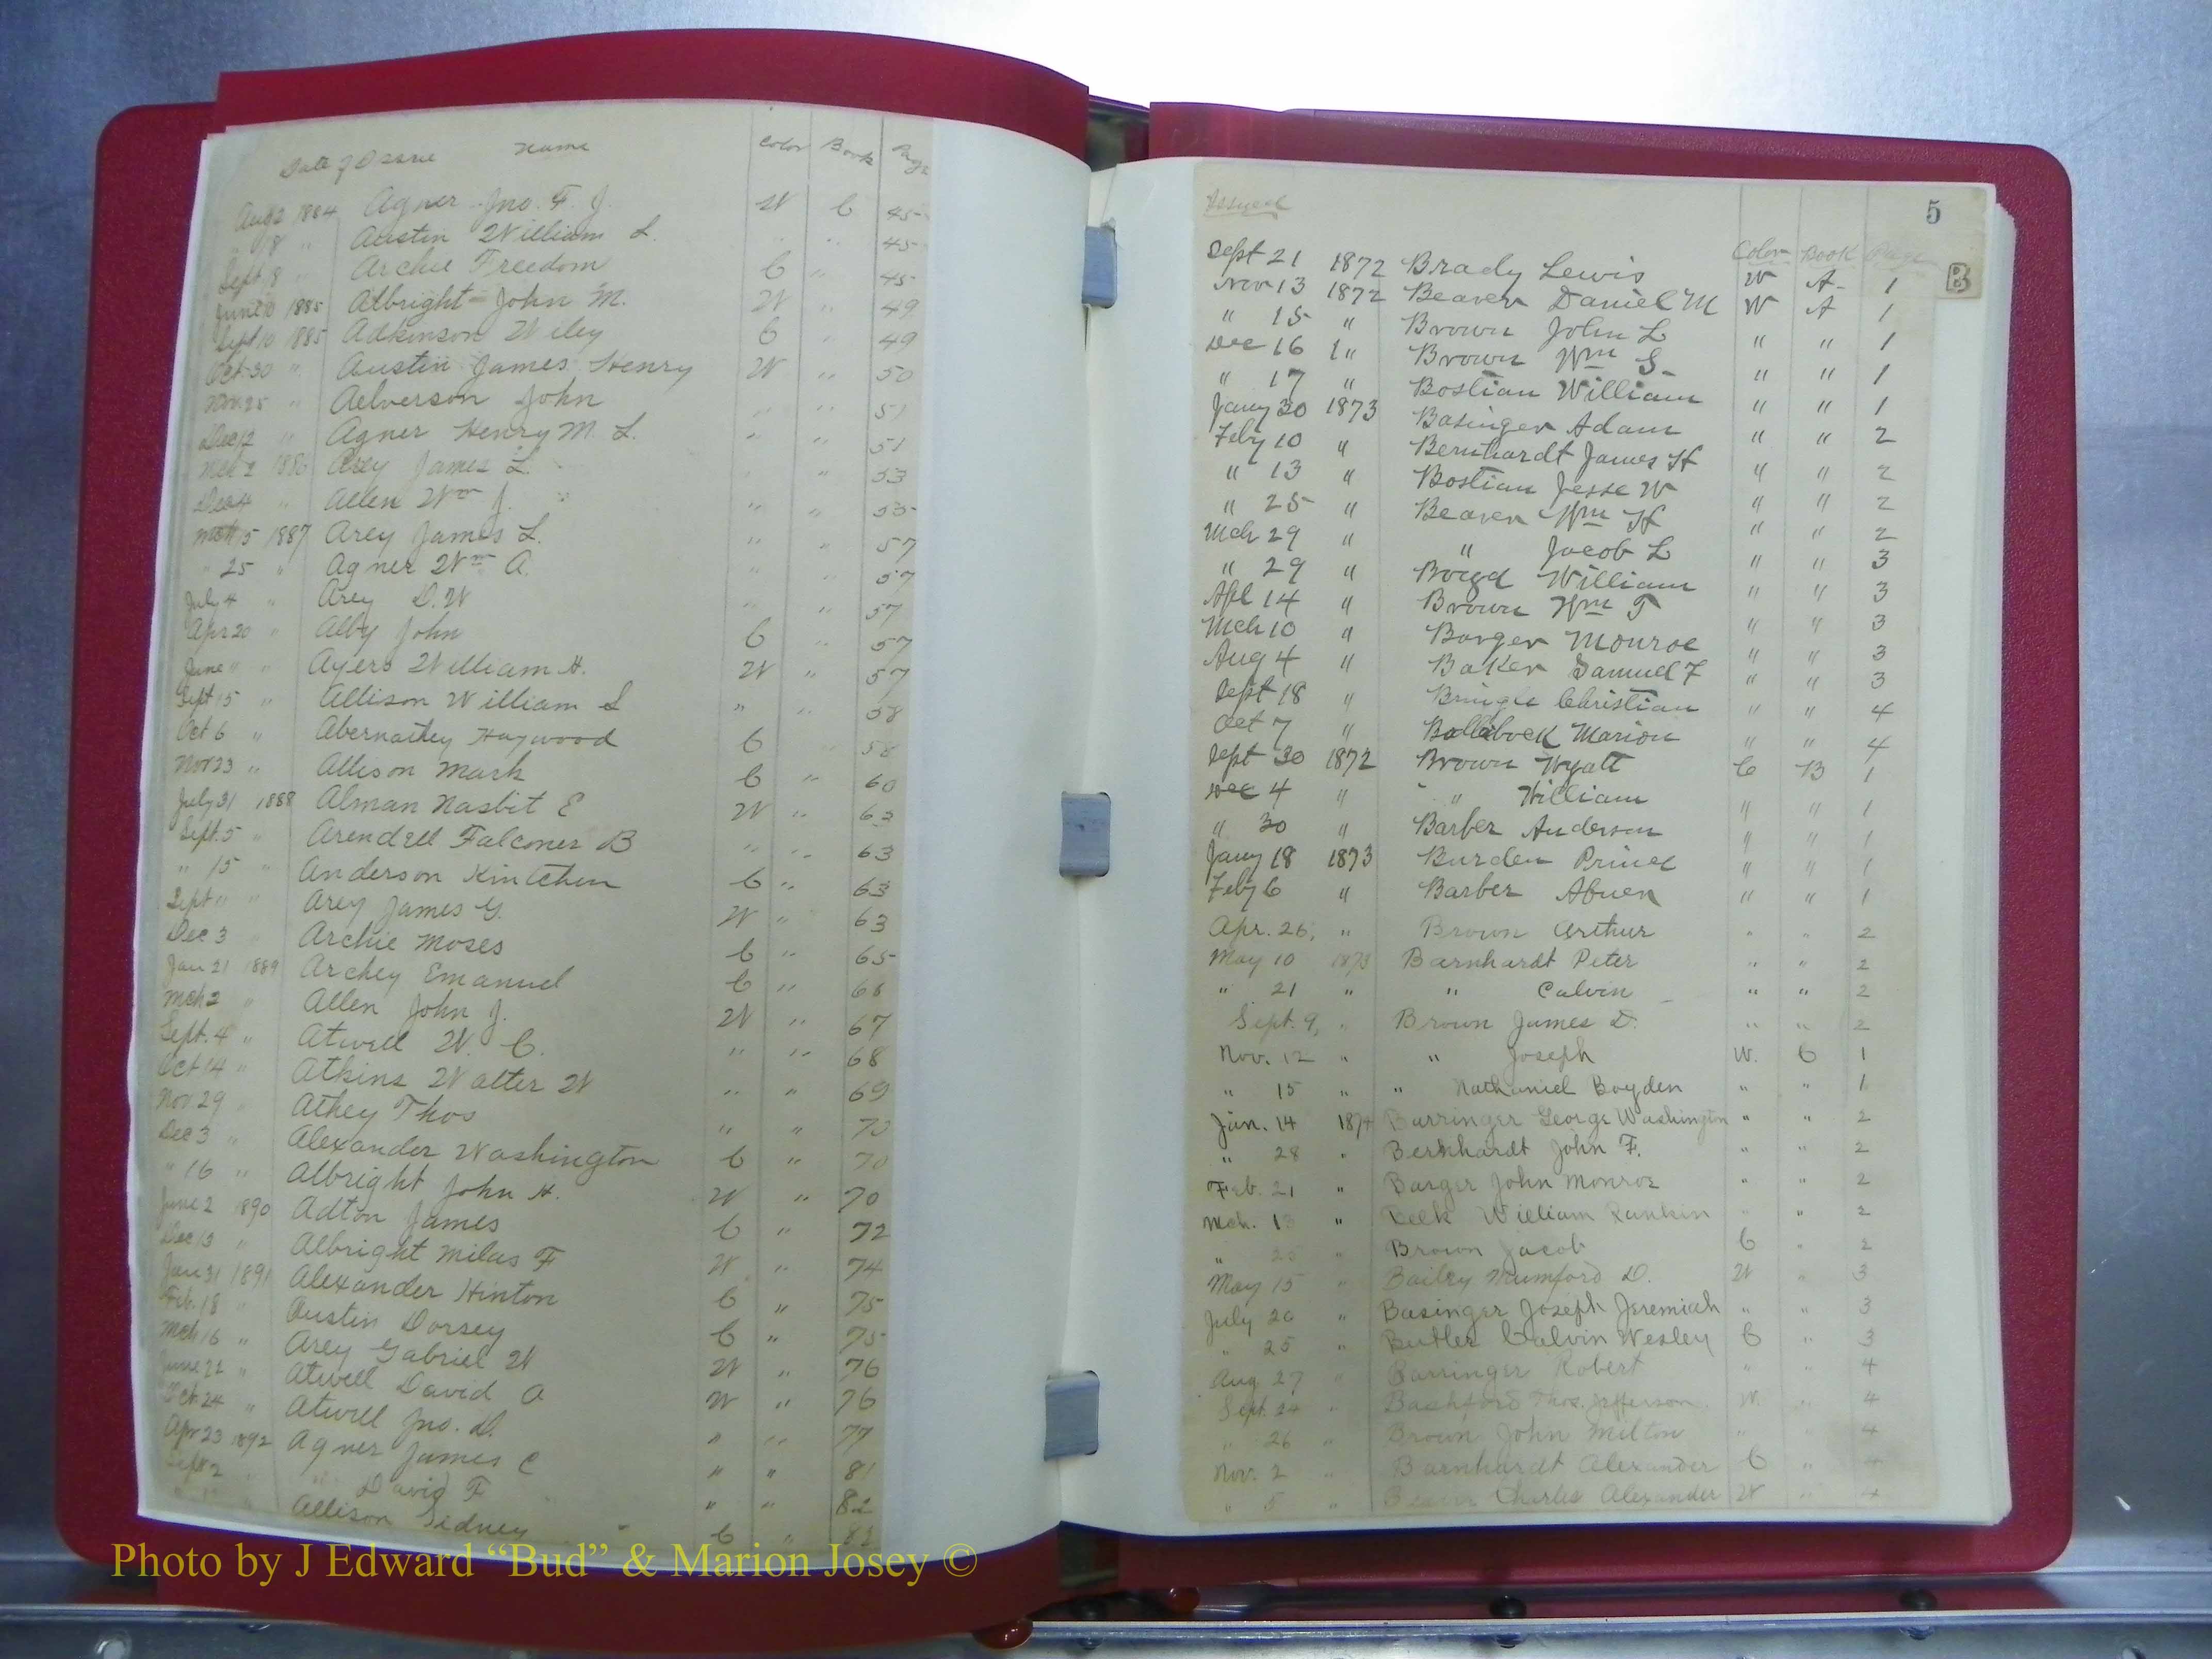 Date of Issue Name Color Book Page
Aug 2 1884 Agner Jno. F. J. W C 45
" 18 " Austin William L. " " 45
Sept 8 " Archie Freedom C " 45
June 10 1885 Albright John M. W " 49
Sept 10 1885 Adkinson Wiley C " 49
Oct 30 " Austin James Henry W " 50
Nov. 25 " Aelverson John " " 51
Dec 12 " Agner Henry M. L. " " 51
1886 Arey James L. " " 53
Dec 4 " Allen Wm J. " " 55
Mch 15 1887 Arey James L. " " 57
" 25 " Agner Wm A. " " 57
July 4 " Arey D. W " " 57
Apr 20 " Alby John C " 57
June " " Ayers William H. W " 57
Sept 15 " Allison William S " " 58
Oct 6 " Abernathey Haywood C " 58
Nov 23 " Allison Mark C " 60
July 31 1888 Alman Nasbit E W " 63
Sept. 5 " Arendell Falconer B " " 63
" 15 " Anderson Kintchen C " 63
Sept " " Arey James G. W " 63
Dec 3 " Archie Moses C " 65
Jan 21 1889 Archey Emanuel C " 66
Mch 2 " Allen John J. W " 67
Sept. 4 " Atwell W. C. " " 68
Oct 14 " Atkins Walter W " " 69
Nov 29 " Athey Thos " " 70
Dec 3 " Alexander Washington C " 70
" 16 " Albright John H. W " 70
June 2 1890 Adton James C " 72
Dec 13 " Albright Milas F W " 74
Jan 31 1891 Alexander Hinton C " 75
Feb. 18 " Austin Dorsey C " 75
Mch 16 " Arey Gabriel W W " 76
June 22 " Atwell David A W " 76
Oct. 24 " Atwell Jno. D. " " 77
Apr 23 1892 Agner James C " " 81
Sept 2 " " David F " " 82
Allison Sidney C " 83
5
Issued Color Book Page
B
Sept 21 1872 Brady Lewis W A 1
Nov 13 1872 Beaver Daniel M W A 1
" 15 " Brown John L " " 1
Dec 16 1 " Brown Wm S. " " 1
" 17 " Bostian William " " 1
Jany 30 1873 Basinger Adam " " 2
Feby 10 " Bernhardt James H " " 2
" 13 " Bostian Jesse W " " 2
" 25 " Beaver Wm H " " 2
Mch 29 " " Jacob L " " 3
" 29 " Boyd William " " 3
Apl 14 " Brown Wm T " " 3
Mch 10 " Barger Monroe " " 3
Aug 4 " Baker Samuel F " " 3
Sept 18 " Bringle Christian " " 4
Oct 7 " Marion " " 4
Sept 30 1872 Brown Wyatt C B 1
Dec 4 " " William " " 1
" 30 " Barber Anderson " " 1
Jany 18 1873 Burden Prince " " 1
Feby 6 " Barber Abner " " 1
Apr. 26, " Brown Arthur " " 2
May 10 1873 Barnhardt Peter " " 2
" 21 " " Calvin " " 2
Sept. 9, " Brown James D. " " 2
Nov. 12 " " Joseph W. C 1
" 15 " " Nathaniel Boyden " " 1
Jan. 14 1874 Barringer George Washington " " 2
" 28 " Bernhardt John F. " " 2
Feb. 21 " Barger John Monroe " " 2
Mch. 13 " Belk William Rankin " " 2
" 25 " Brown Jacob C " 2
May 15 " Bailey Mumford D. W " 3
July 20 " Basinger Joseph Jeremiah " " 3
" 25 " Butler Calvin Wesley C " 3
Aug 27 " Barringer Robert " " 4
Sept. 24 " Bashford Thos. Jefferson W. " 4
" 26 " Brown John Milton " " 4
Nov. 2 " Barnhardt Alexander C " 4
" 5 " Beaver Charles Alexander W " 4
Photo by J Edward “Bud” & Marion Josey ©